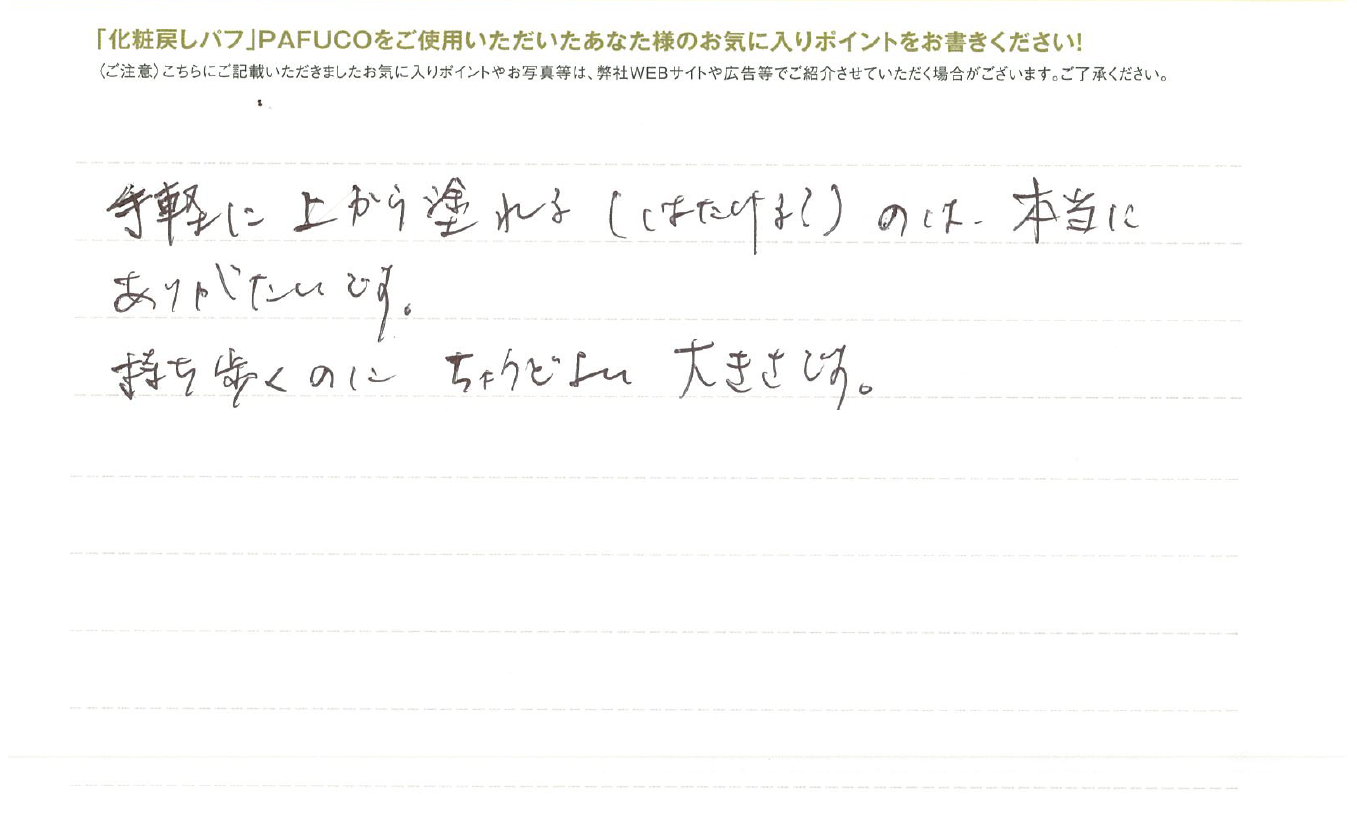 「化粧戻しパフ」PAFUCOをご使用いただいたあなた様のお気に入りポイントをお書きください!
(ご注意)こちらにご記載いただきましたお気に入りポイントやお写真等は、弊社WEBサイトや広告等でご紹介させていただく場合がございます。ご了承ください。
手軽に上から塗れる(はたける?)のは、本当に
ありがたいです。
持ち歩くのにちょうどよい大きさです。